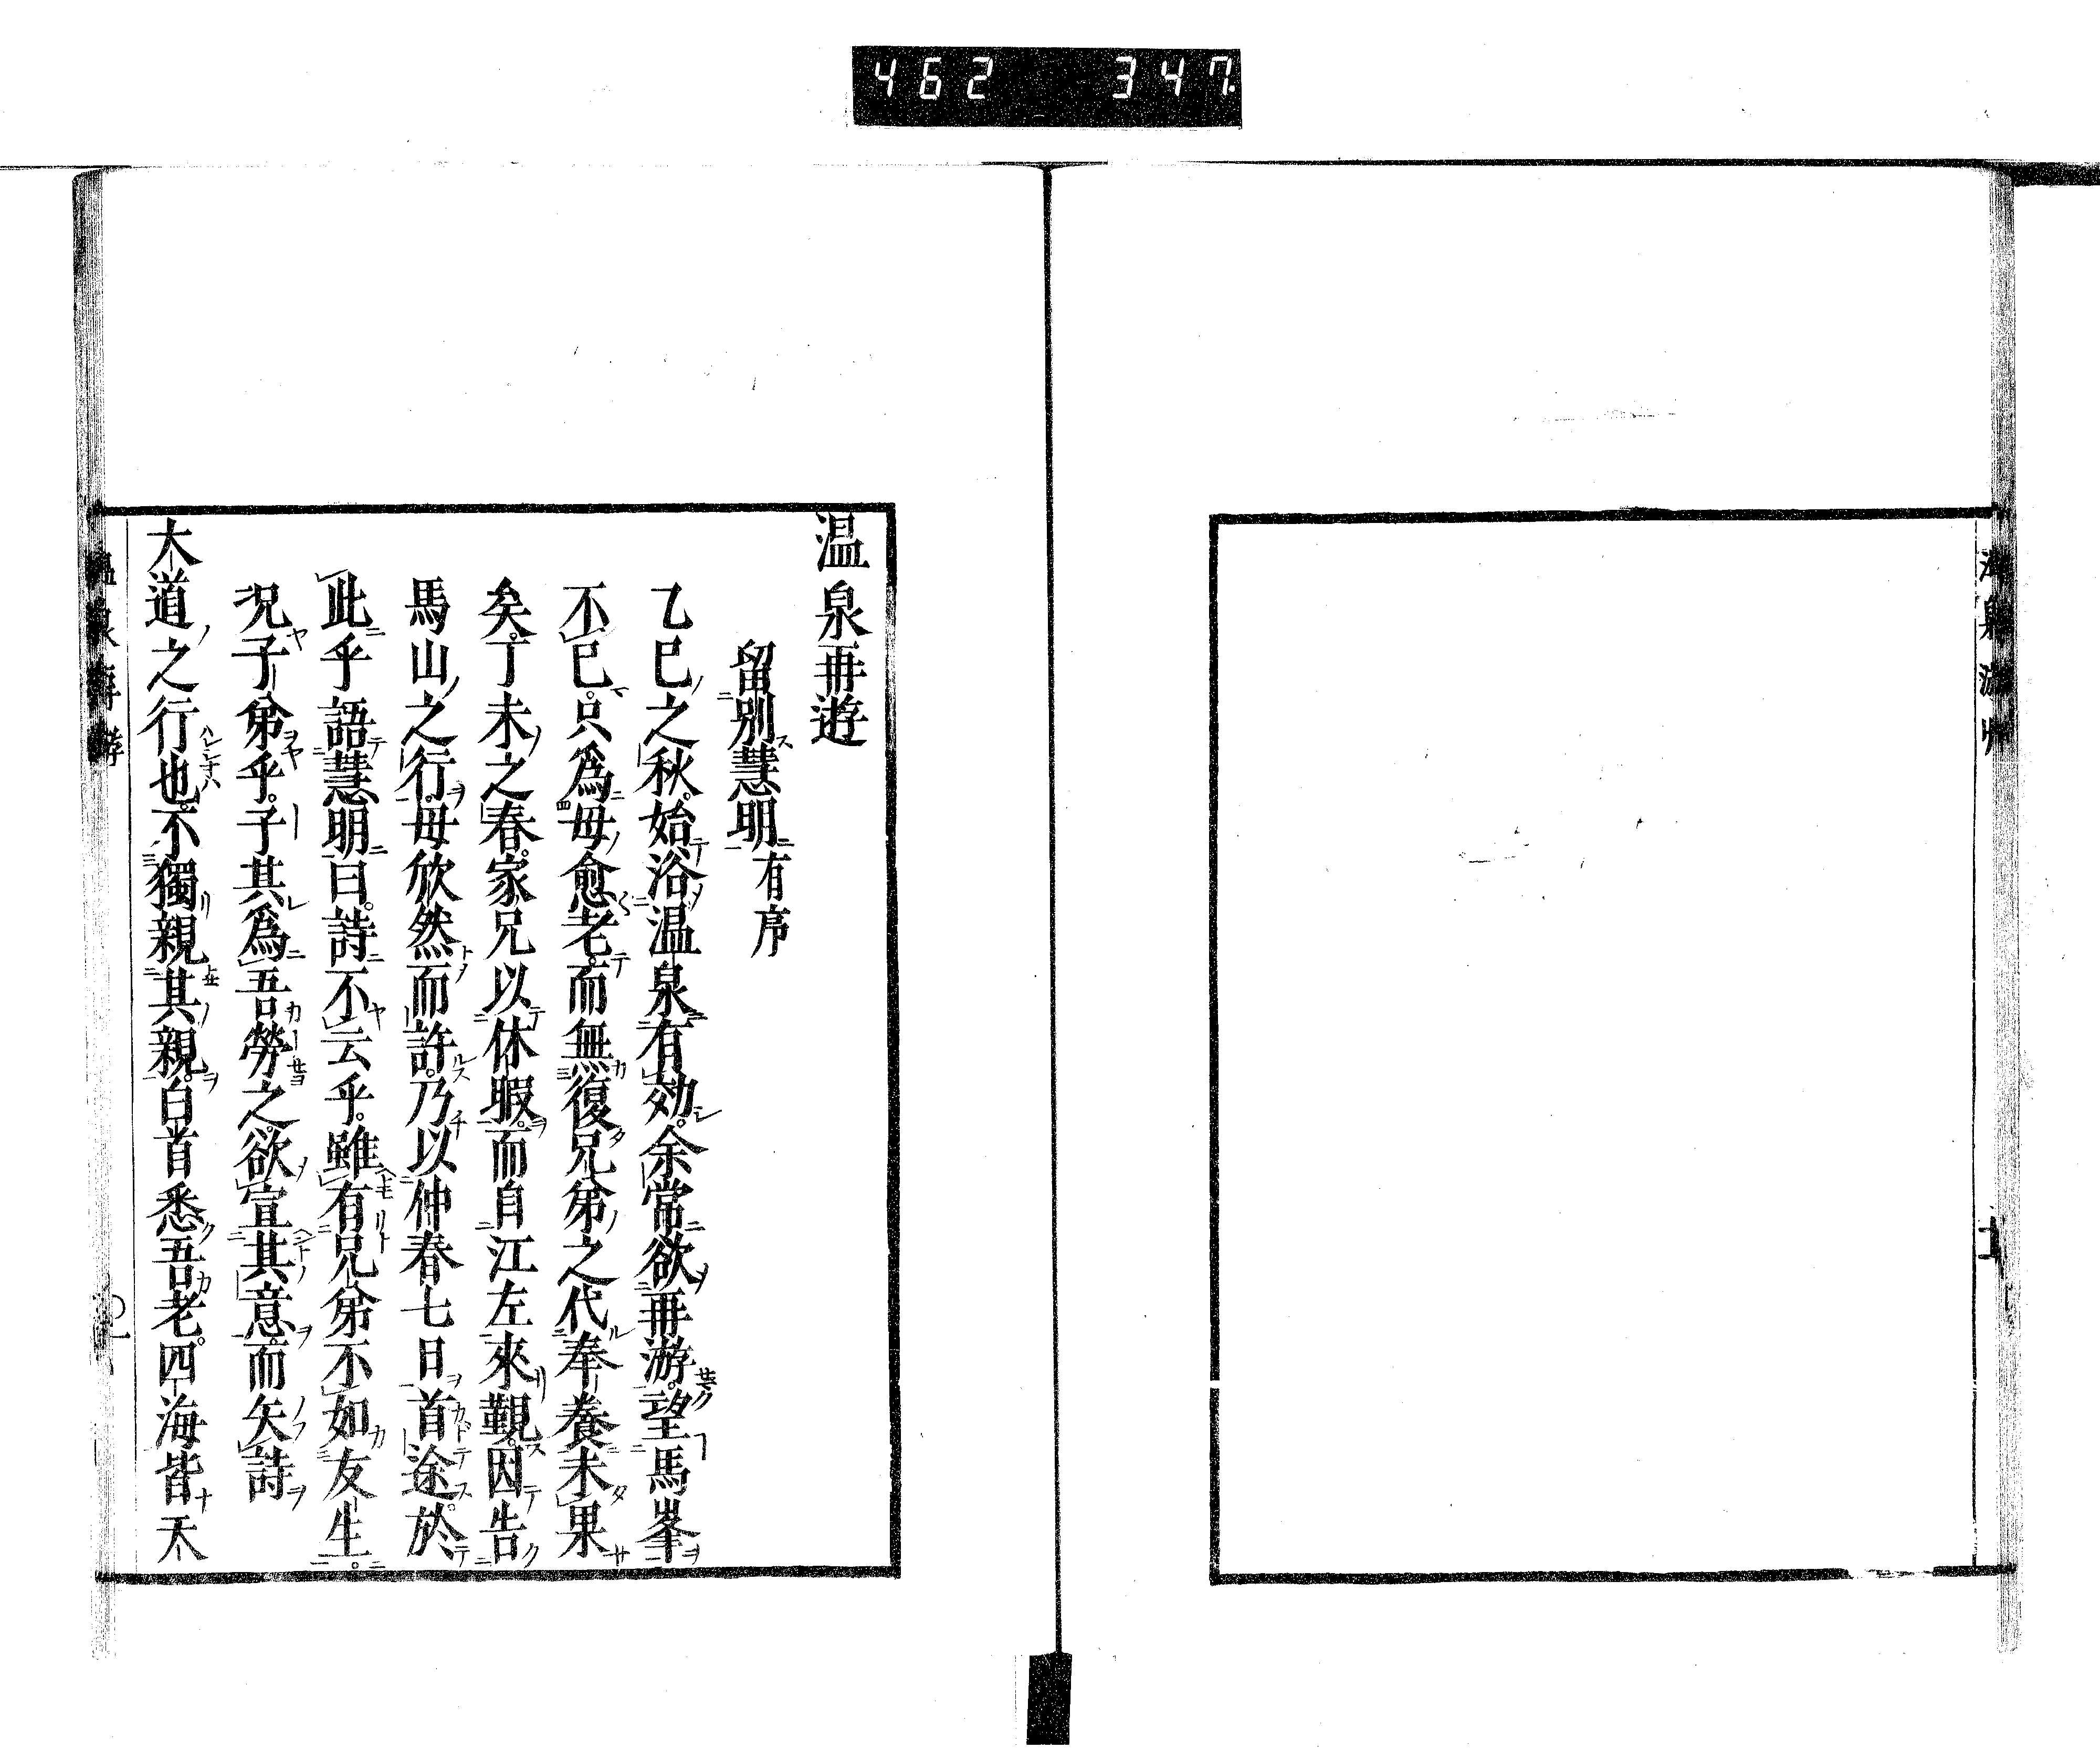 462 347
温泉再遊
留別慧明有序
乙巳之秋。始浴温泉有効。余常欲再游。望馬峯
不已。只爲母愈老。而無復兄弟之代奉養。未果
矣。丁未之春。家兄以休暇。而自江左來覲。因告
馬山之行。母欣然而許。乃以仲春七日首途。於
此乎語慧明曰。詩不云乎。雖有兄弟不如友生。
况子弟乎。子其爲吾勞之。欲宣其意。而矢詩
大道之行也。不獨親其親。白首悉吾老。四海皆天
温泉再遊